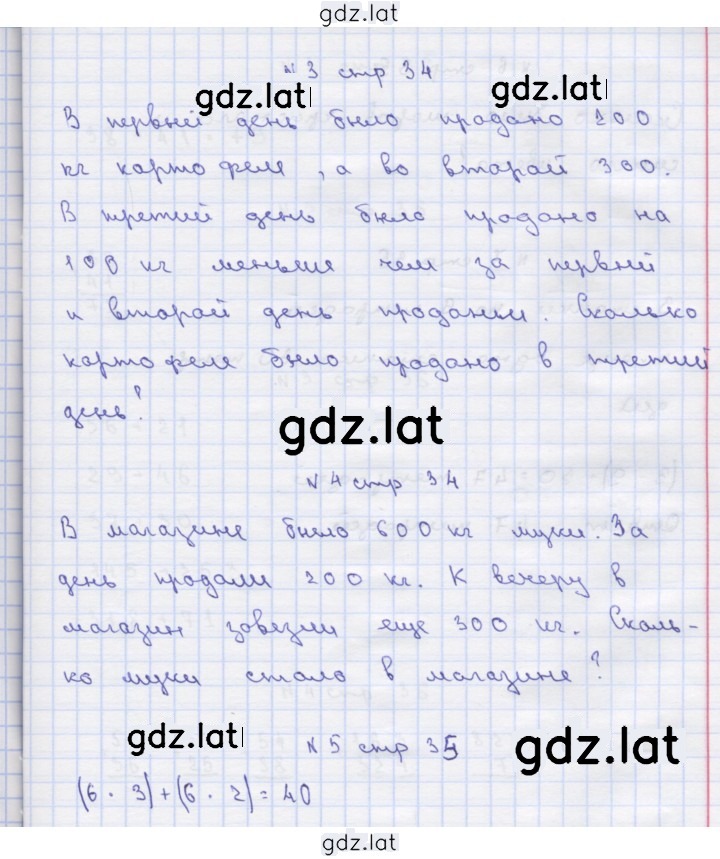 gdz.lat
№ 3 стр 34
gdz.lat gdz.lat
В первый день было продано 200
кг картофеля, а во второй 300.
В третий день было продано на
100 кг меньше чем за первый
и второй день продании. Сколько
картофеля было продано в третий
день?
gdz.lat
№ 4 стр 34
В магазине было 600 кг муки. За
день продали 200 кг. К вечеру в
магазин завезли еще 300 кг. Сколь-
ко муки стало в магазине?
gdz.lat gdz.lat
№ 5 стр 35
(6 · 3)+(6 · 2)= 40
gdz.lat